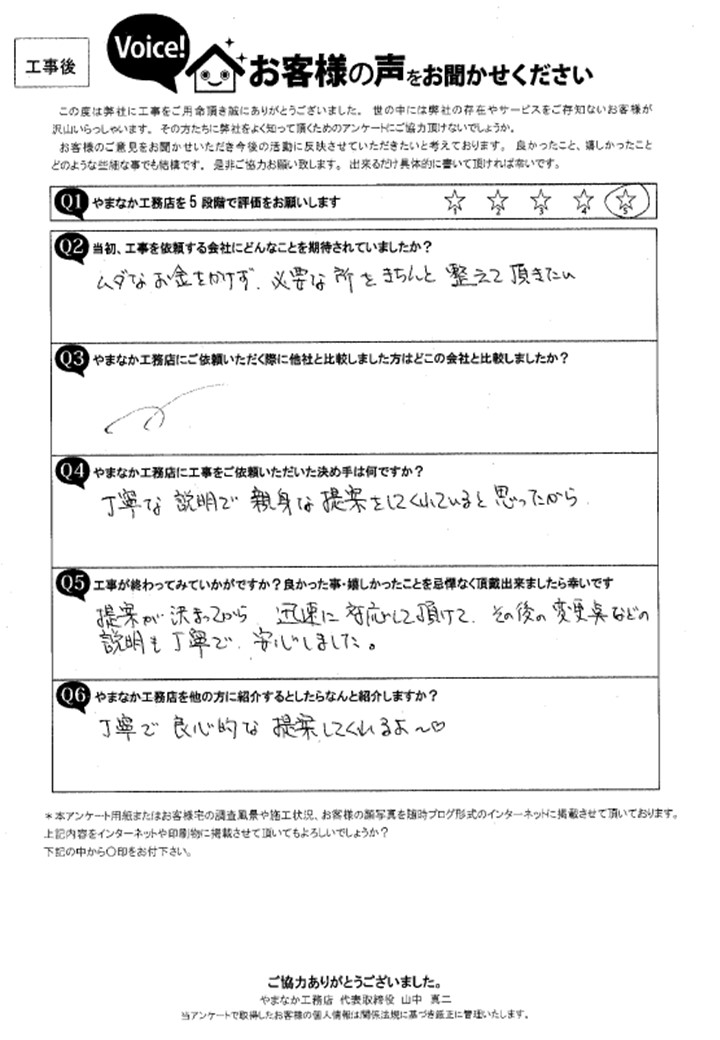 工事後
Voice!
お客様の声をお聞かせください
この度は弊社に工事をご用命頂き誠にありがとうございました。 世の中には弊社の存在やサービスをご存知ないお客様が
沢山いらっしゃいます。その方たちに弊社をよく知って頂くためのアンケートにご協力頂けないでしょうか。
お客様のご意見をお聞かせいただき今後の活動に反映させていただきたいと考えております。 良かったこと、嬉しかったこと
どのような些細な事でも結構です。 是非ご協力お願い致します。 出来るだけ具体的に書いて頂ければ幸いです。
Q1 やまなか工務店を5段階で評価をお願いします
1 2 3 4 5
Q2 当初、工事を依頼する会社にどんなことを期待されていましたか？
ムダなお金をかけず、必要な所をきちんと整えて頂きたい
Q3 やまなか工務店にご依頼いただく際に他社と比較しました方はどこの会社と比較しましたか？
Q4 やまなか工務店に工事をご依頼いただいた決め手は何ですか？
丁寧な説明で親身な提案をしてくれていると思ったから
Q5 工事が終わってみていかがですか？良かった事・嬉しかったことを忌憚なく頂戴出来ましたら幸いです
提案が決まってから 迅速に対応して頂けて、その後の変更点などの
説明も丁寧で、安心しました。
Q6 やまなか工務店を他の方に紹介するとしたらなんと紹介しますか？
丁寧で良心的な提案してくれるよ～♡
＊本アンケート用紙またはお客様宅の調査風景や施工状況、お客様の顔写真を随時ブログ形式のインターネットに掲載させて頂いております。
上記内容をインターネットや印刷物に掲載させて頂いてもよろしいでしょうか？
下記の中から〇印をお付下さい。
ご協力ありがとうございました。
やまなか工務店 代表取締役 山中 真二
当アンケートで取得したお客様の個人情報は関係法規に基づき厳正に管理いたします。